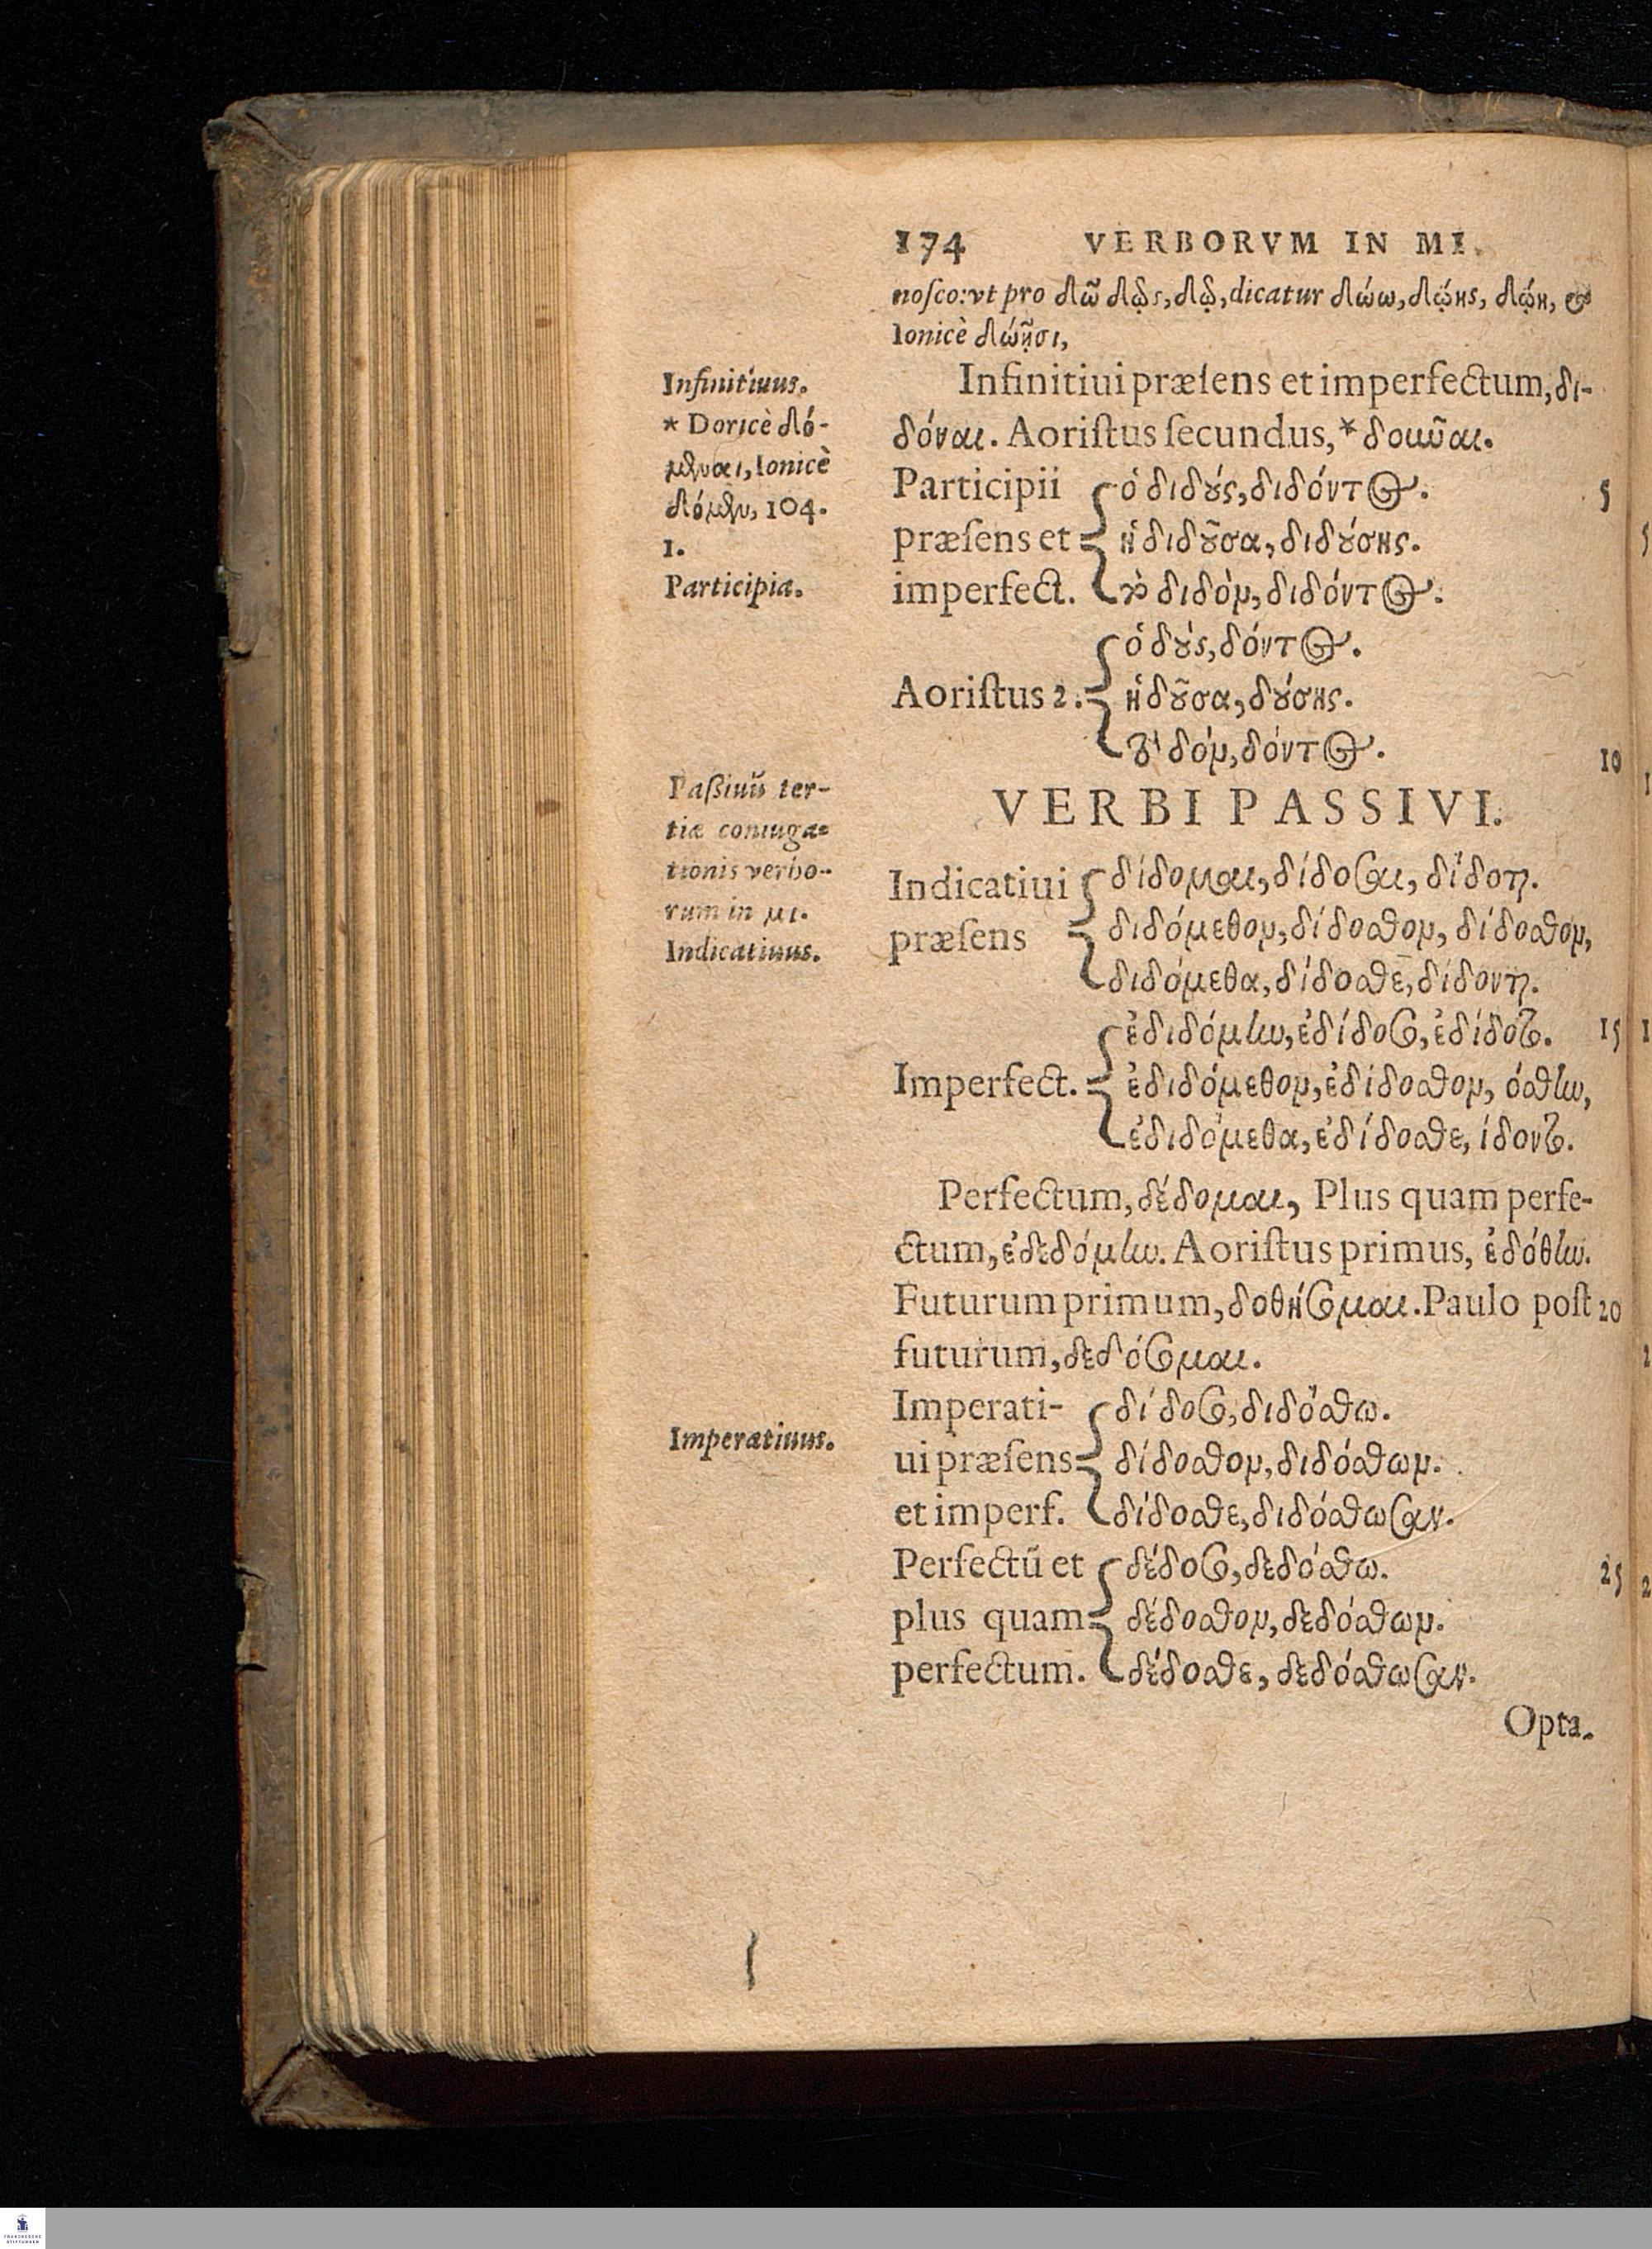 174 VERBORVM IN MI.
noſco:vt pro δῶ δῷς, δῷ, dicatur δώω, δώῃς, δώῃ, &
Ionicè δώῃσι,
Infinitiuus.
* Doricè δό-
μεναι, Ionicè
δόμεν, 104.
1.
Participia.
Infinitiui præſens et imperfectum, δι-
δόναι. Aoriſtus ſecundus, * δοῦναι.
Participii ὁ διδούς, διδόντος. 5
præſens et ἡ διδοῦσα, διδούσης.
imperfect. τὸ διδὸν, διδόντος.
ὁ δοὺς, δόντος.
Aoriſtus 2. ἡ δοῦσα, δούσης.
τὸ δόν, δόντος. 10
Paſſiuũ ter-
tiæ coniuga-
tionis verbo-
rum in μι.
Indicatiuus.
VERBI PASSIVI.
Indicatiui δίδομαι, δίδοσαι, δίδοται.
præſens διδόμεθον, δίδοσθον, δίδοσθον,
διδόμεθα, δίδοσθε, δίδονται.
ἐδιδόμην, ἐδίδοσο, ἐδίδοτο. 15
Imperfect. ἐδιδόμεθον, ἐδίδοσθον, όσθην,
ἐδιδόμεθα, ἐδίδοσθε, ίδοντο.
Perfectum, δέδομαι, Plus quam perfe-
ctum, ἐδεδόμην. Aoriſtus primus, ἐδόθην.
Futurum primum, δοθήσομαι. Paulo poſt 20
futurum, δεδόσομαι.
Imperatiuus.
Imperati- δίδοσο, διδόσθω.
ui præſens δίδοσθον, διδόσθων.
et imperf. δίδοσθε, διδόσθωσαν.
Perfectũ et δέδοσο, δεδόσθω. 25
plus quam δέδοσθον, δεδόσθων.
perfectum. δέδοσθε, δεδόσθωσαν.
Opta.
FRANCKESCHE
STIFTUNGEN